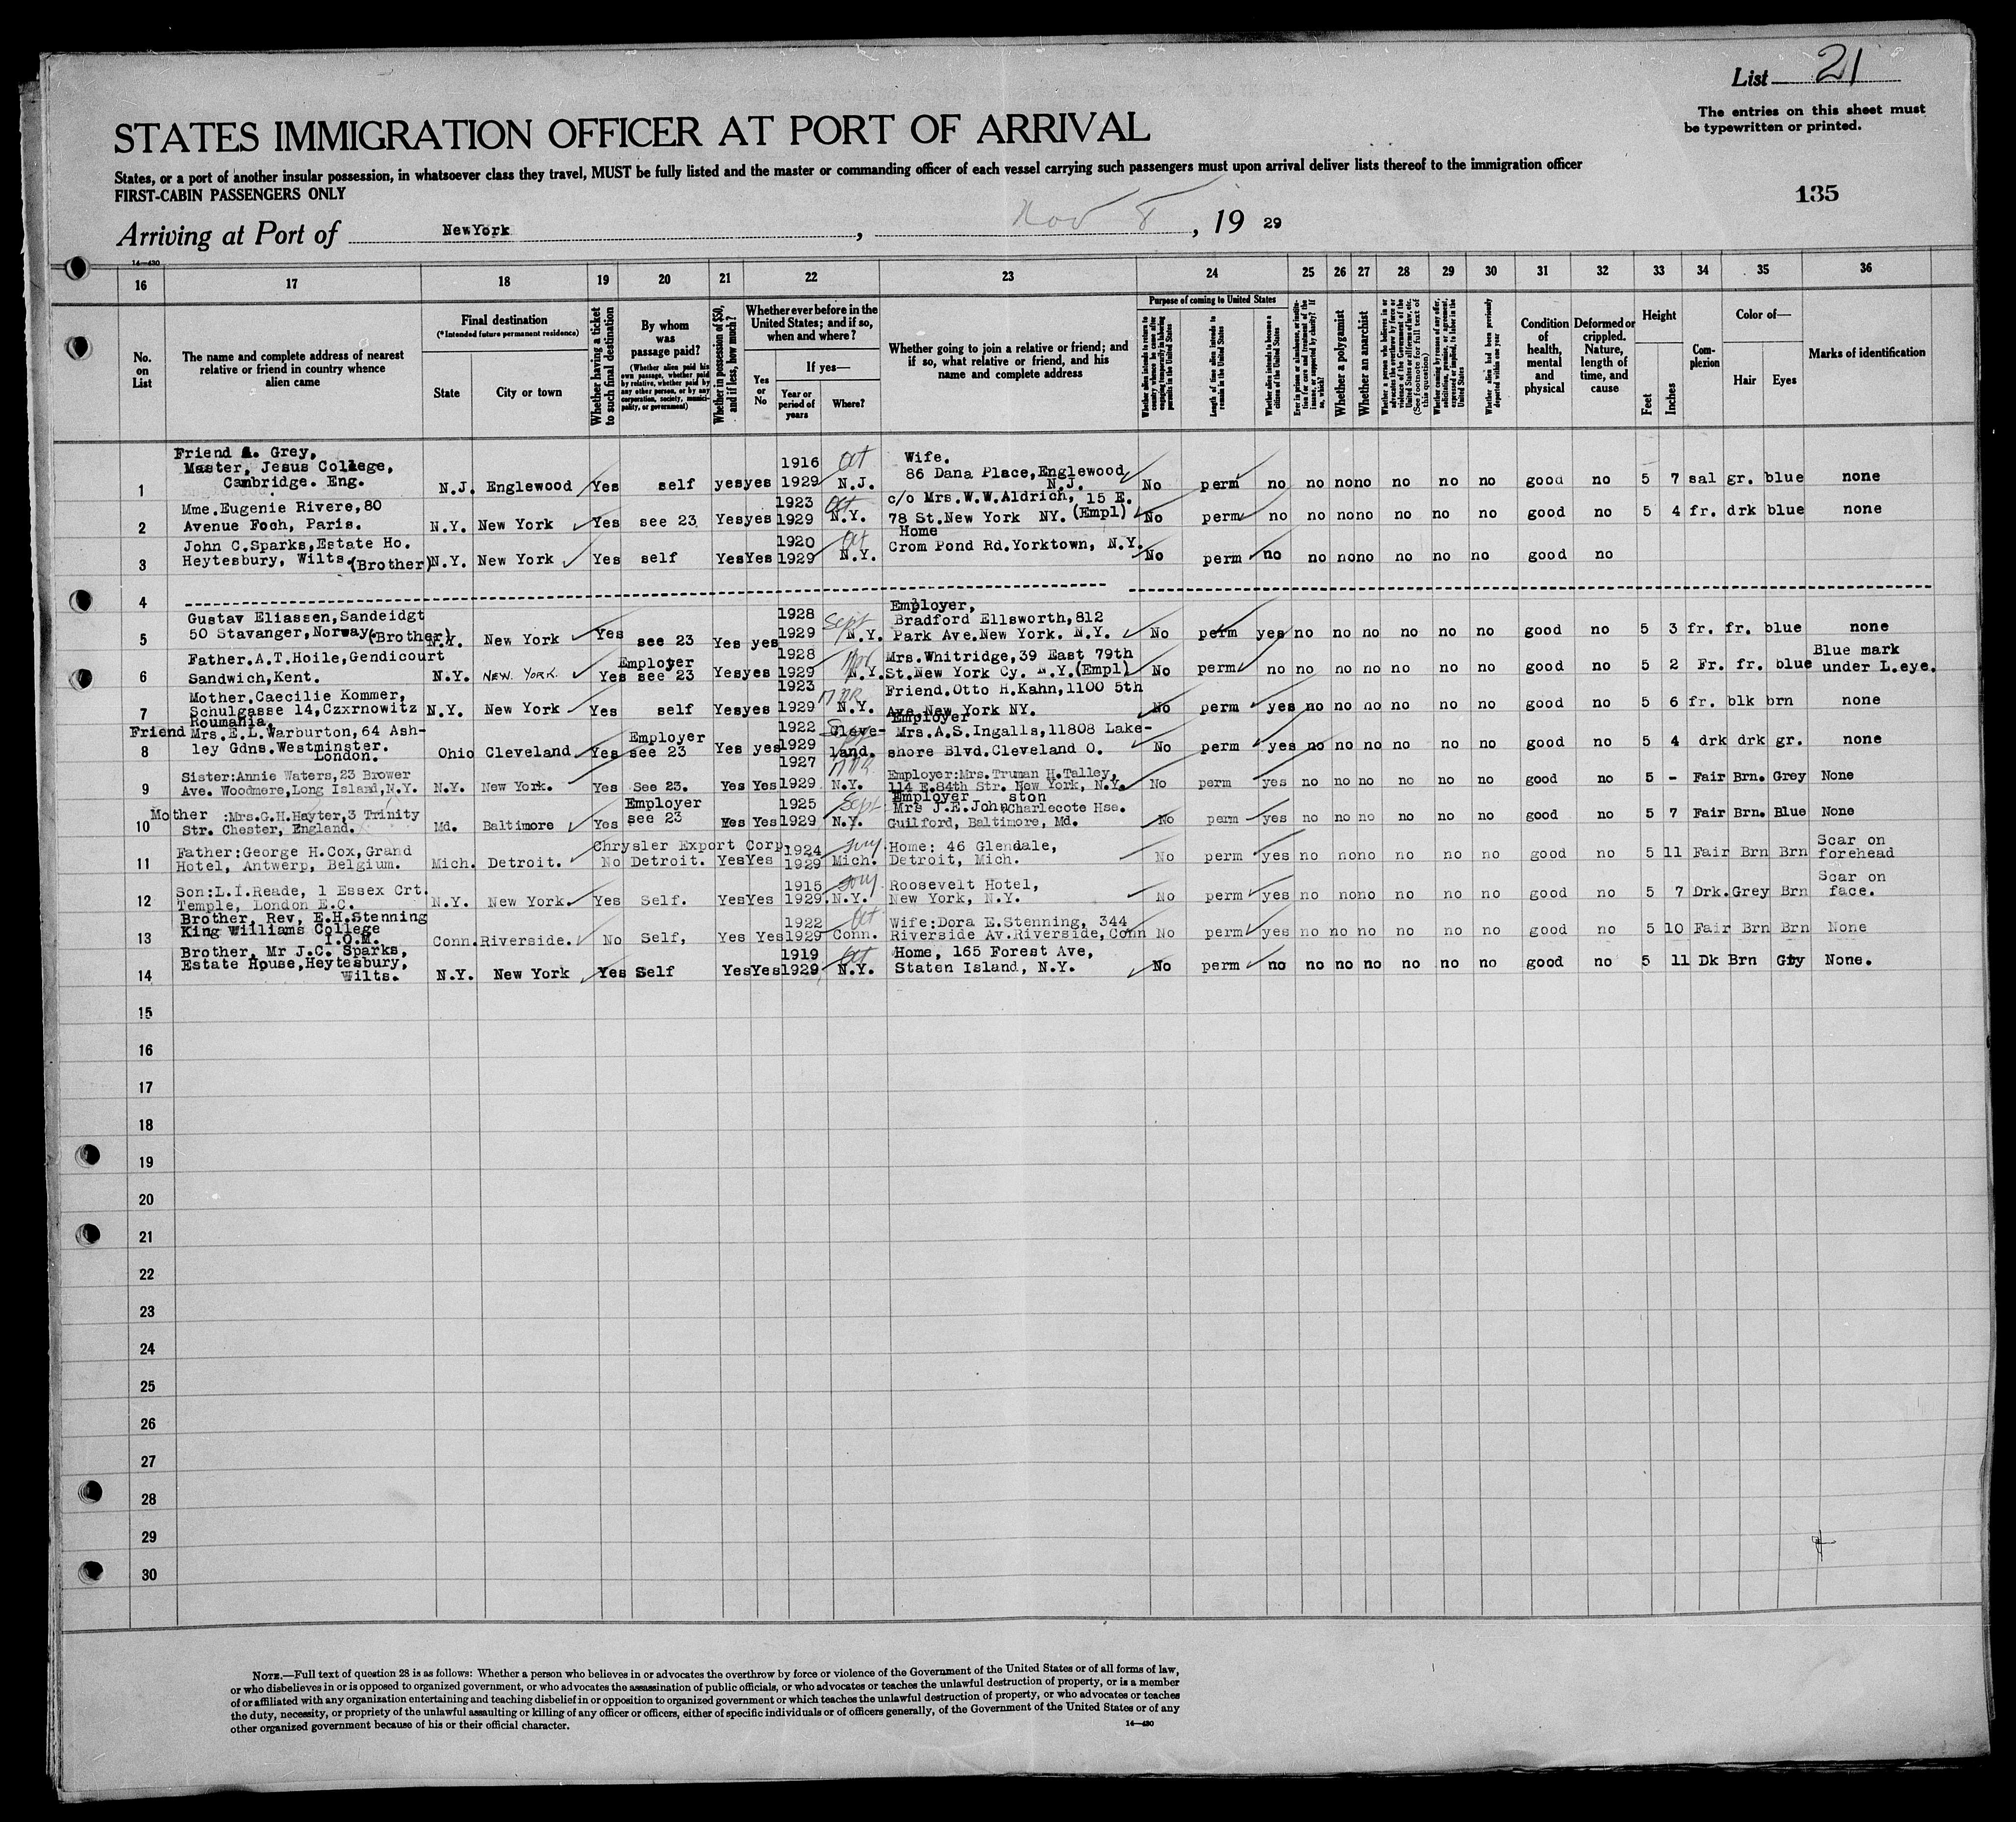 List 21
The entries on this sheet must
be typewritten or printed.
STATES IMMIGRATION OFFICER AT PORT OF ARRIVAL
States, or a port of another insular possession, in whatsoever class they travel, MUST be fully listed and the master or commanding officer of each vessel carrying such passengers must upon arrival deliver lists thereof to the immigration officer
FIRST-CABIN PASSENGERS ONLY
135
Arriving at Port of NewYork, Nov 8, 19 29
14—430
16 17 18 19 20 21 22 23 24 25 26 27 28 29 30 31 32 33 34 35 36
No. on List
The name and complete address of nearest relative or friend in country whence alien came
Final destination
(*Intended future permanent residence)
State
City or town
Whether having a ticket to such final destination
By whom was passage paid?
(Whether alien paid his own passage, whether paid by relative, whether paid by any other person, or by any corporation, society, municipality, or government)
Whether in possession of $50, and if less, how much?
Whether ever before in the United States; and if so, when and where?
Yes or No
If yes—
Year or period of years
Where?
Whether going to join a relative or friend; and if so, what relative or friend, and his name and complete address
Purpose of coming to United States
Whether alien intends to return to country whence he came after engaging temporarily in laboring pursuits in the United States
Length of time alien intends to remain in the United States
Whether alien intends to become a citizen of the United States
Ever in prison or almshouse, or institution for care and treatment of the insane, or supported by charity? If so, which?
Whether a polygamist
Whether an anarchist
Whether a person who believes in or advocates the overthrow by force or violence of the Government of the United States or all forms of law, etc. (See footnote for full text of this question)
Whether coming by reason of any offer, solicitation, promise, or agreement, expressed or implied, to labor in the United States
Whether alien had been previously deported within one year
Condition of health, mental and physical
Deformed or crippled. Nature, length of time, and cause
Height
Feet
Inches
Complexion
Color of—
Hair
Eyes
Marks of identification
Friend A. Grey, 1916 Wife.
Master, Jesus College, 86 Dana Place, Englewood
1 Cambridge. Eng. N.J. Englewood Yes self yes yes 1929 N.J. N.J. No perm no no no no no no no good no 5 7 sal gr. blue none
Mme. Eugenie Rivere, 80 1923 c/o Mrs.W.W.Aldrich, 15 E.
2 Avenue Foch, Paris. N.Y. New York Yes see 23 Yes yes 1929 N.Y. 78 St.New York NY. (Empl) No perm no no no no no no no good no 5 4 fr. drk blue none
John C.Sparks, Estate Ho. 1920 Home
3 Heytesbury, Wilts. (Brother) N.Y. New York Yes self Yes Yes 1929 N.Y. Crom Pond Rd.Yorktown, N.Y. No perm no no no no no no no good no
4
Gustav Eliassen, Sandeidgt 1928 Sept Employer,
Bradford Ellsworth, 812
5 50 Stavanger, Norway (Brother) N.Y. New York Yes see 23 Yes yes 1929 N.Y. Park Ave.New York. N.Y. No perm yes no no no no no no good no 5 3 fr. fr. blue none
Father.A.T.Hoile, Gendicourt Employer 1928 Mrs.Whitridge, 39 East 79th Blue mark
6 Sandwich, Kent. N.Y. NEW YORK. Yes see 23 Yes yes 1929 N.Y. St.New York Cy. N.Y. (Empl) No perm no no no no no no no good no 5 2 Fr. fr. blue under L.eye.
Mother.Caecilie Kommer, 1923 Friend.Otto H.Kahn, 1100 5th
7 Schulgasse 14, Czxrnowitz N.Y. New York Yes self Yes yes 1929 N.Y. Ave New York NY. No perm yes no no no no no no good no 5 6 fr. blk brn none
Roumania.
Friend Mrs.E.L.Warburton, 64 Ash- Employer 1922 Cleve- Employer
Mrs.A.S.Ingalls, 11808 Lake-
8 ley Gdns.Westminster. Ohio Cleveland Yes see 23 Yes yes 1929 land. shore Blvd.Cleveland O. No perm yes no no no no no no good no 5 4 drk drk gr. none
London.
Sister:Annie Waters, 23 Brower 1927 Employer:Mrs. Truman H.Talley,
9 Ave. Woodmere, Long Island, N.Y. N.Y. New York. Yes See 23. Yes Yes 1929 N.Y. 114 E.84th Str. New York, N.Y. No perm yes no no no no no no good no 5 - Fair Brn. Grey None
Mother :Mrs.G.H.Hayter, 3 Trinity Employer 1925 Sept Employer
Mrs J.E.Johnston Charlecote Hse.
10 Str. Chester, England. Md. Baltimore Yes see 23 Yes Yes 1929 N.Y. Guilford, Baltimore, Md. No perm yes no no no no no no good no 5 7 Fair Brn. Blue None
Father:George H.Cox, Grand Chrysler Export Corp 1924 Home: 46 Glendale, Scar on
11 Hotel, Antwerp, Belgium. Mich. Detroit. No Detroit. Yes Yes 1929 Mich. Detroit, Mich. No perm yes no no no no no no good no 5 11 Fair Brn Brn forehead
Son:L.I.Reade, 1 Essex Crt. 1915 Roosevelt Hotel, Scar on
12 Temple, London E.C. N.Y. New York. Yes Self. Yes Yes 1929 N.Y. New York, N.Y. No perm yes no no no no no no good no 5 7 Drk. Grey Brn face.
Brother, Rev, E.H.Stenning 1922 Wife:Dora E.Stenning, 344
13 King Williams College Conn. Riverside. No Self, Yes Yes 1929 Conn. Riverside Av.Riverside, Conn No perm yes no no no no no no good no 5 10 Fair Brn Brn None
I.O.M.
Brother, Mr J.C. Sparks, 1919 Home, 165 Forest Ave,
Estate House, Heytesbury,
14 Wilts. N.Y. New York Yes Self Yes Yes 1929 N.Y. Staten Island, N.Y. No perm no no no no no no no good no 5 11 Dk Brn None.
15
16
17
18
19
20
21
22
23
24
25
26
27
28
29
30
NOTE.—Full text of question 28 is as follows: Whether a person who believes in or advocates the overthrow by force or violence of the Government of the United States or of all forms of law,
or who disbelieves in or is opposed to organized government, or who advocates the assassination of public officials, or who advocates or teaches the unlawful destruction of property, or is a member
of or affiliated with any organization entertaining and teaching disbelief in or opposition to organized government or which teaches the unlawful destruction of property, or who advocates or teaches
the duty, necessity, or propriety of the unlawful assaulting or killing of any officer or officers, either of specific individuals or of officers generally, of the Government of the United States or of any
other organized government because of his or their official character.
14—430